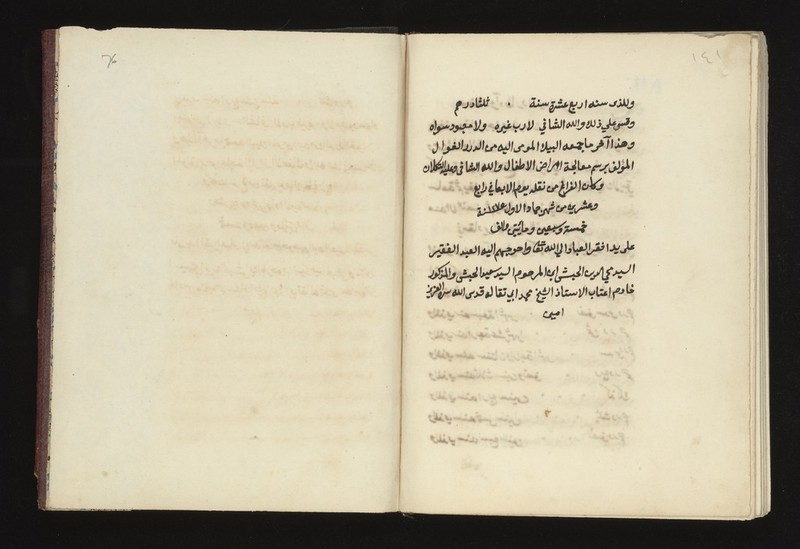 ١٤١
وللذي سنه اربع عشرة سنة ثلثا درهم
وقس على ذلك والله الشافي لا رب غيره ولا معبود سواه
وهذا آخر ما جمعه البيك المومى اليه من الدرر الغوال
المؤلف برسم معالجة امراض الاطفال والله الشافي وعليه التكلان
وكان الفراغ من نقله يوم الاربعا في رابع
وعشرين من شهر جماد الاول
خمسة وسبعين ومايتين والف
على يد افقر العباد الى الله تعالى واحوجهم اليه العبد الفقير
السيد محي الدين الحبشي ابن المرحوم السيد سعيد الحبشي والمذكور
خادم اعتاب الاستاذ الشيخ محمد ابي تقاله قدس الله سره العزيز
امين
76